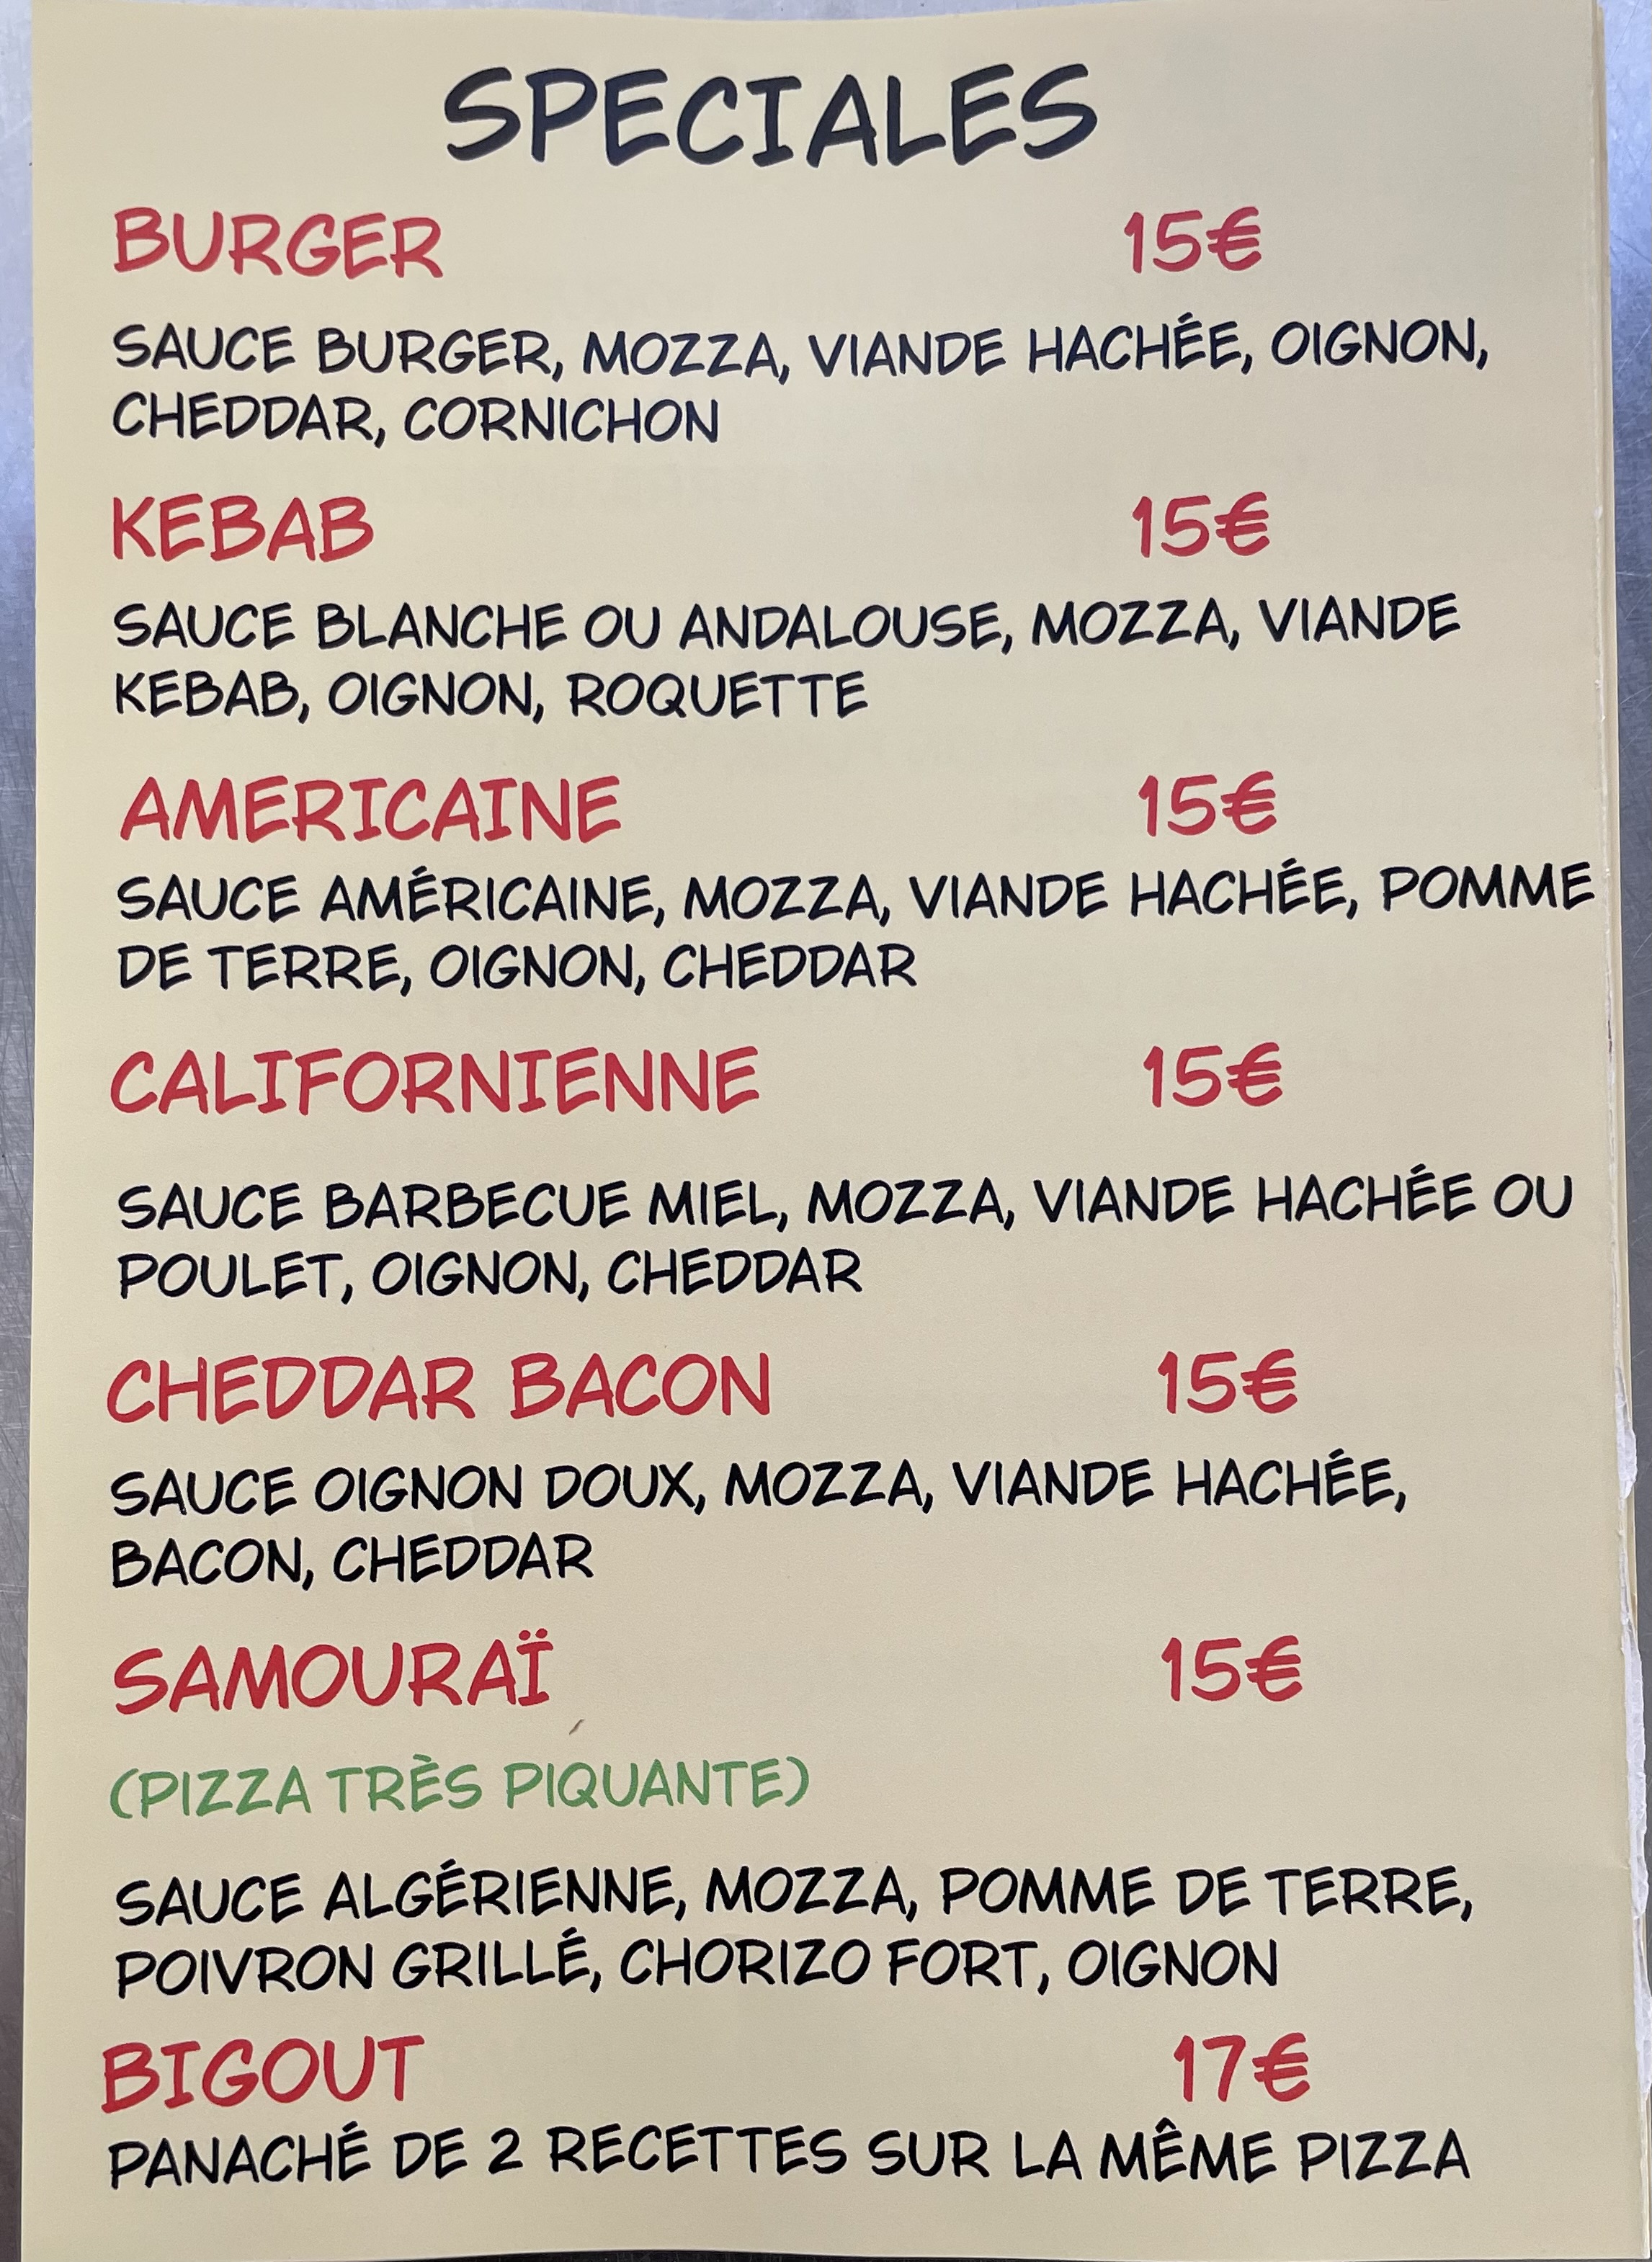 SPECIALES
BURGER 15€
SAUCE BURGER, MOZZA, VIANDE HACHÉE, OIGNON,
CHEDDAR, CORNICHON
KEBAB 15€
SAUCE BLANCHE OU ANDALOUSE, MOZZA, VIANDE
KEBAB, OIGNON, ROQUETTE
AMERICAINE 15€
SAUCE AMÉRICAINE, MOZZA, VIANDE HACHÉE, POMME
DE TERRE, OIGNON, CHEDDAR
CALIFORNIENNE 15€
SAUCE BARBECUE MIEL, MOZZA, VIANDE HACHÉE OU
POULET, OIGNON, CHEDDAR
CHEDDAR BACON 15€
SAUCE OIGNON DOUX, MOZZA, VIANDE HACHÉE,
BACON, CHEDDAR
SAMOURAÏ 15€
(PIZZA TRÈS PIQUANTE)
SAUCE ALGÉRIENNE, MOZZA, POMME DE TERRE,
POIVRON GRILLÉ, CHORIZO FORT, OIGNON
BIGOUT 17€
PANACHÉ DE 2 RECETTES SUR LA MÊME PIZZA